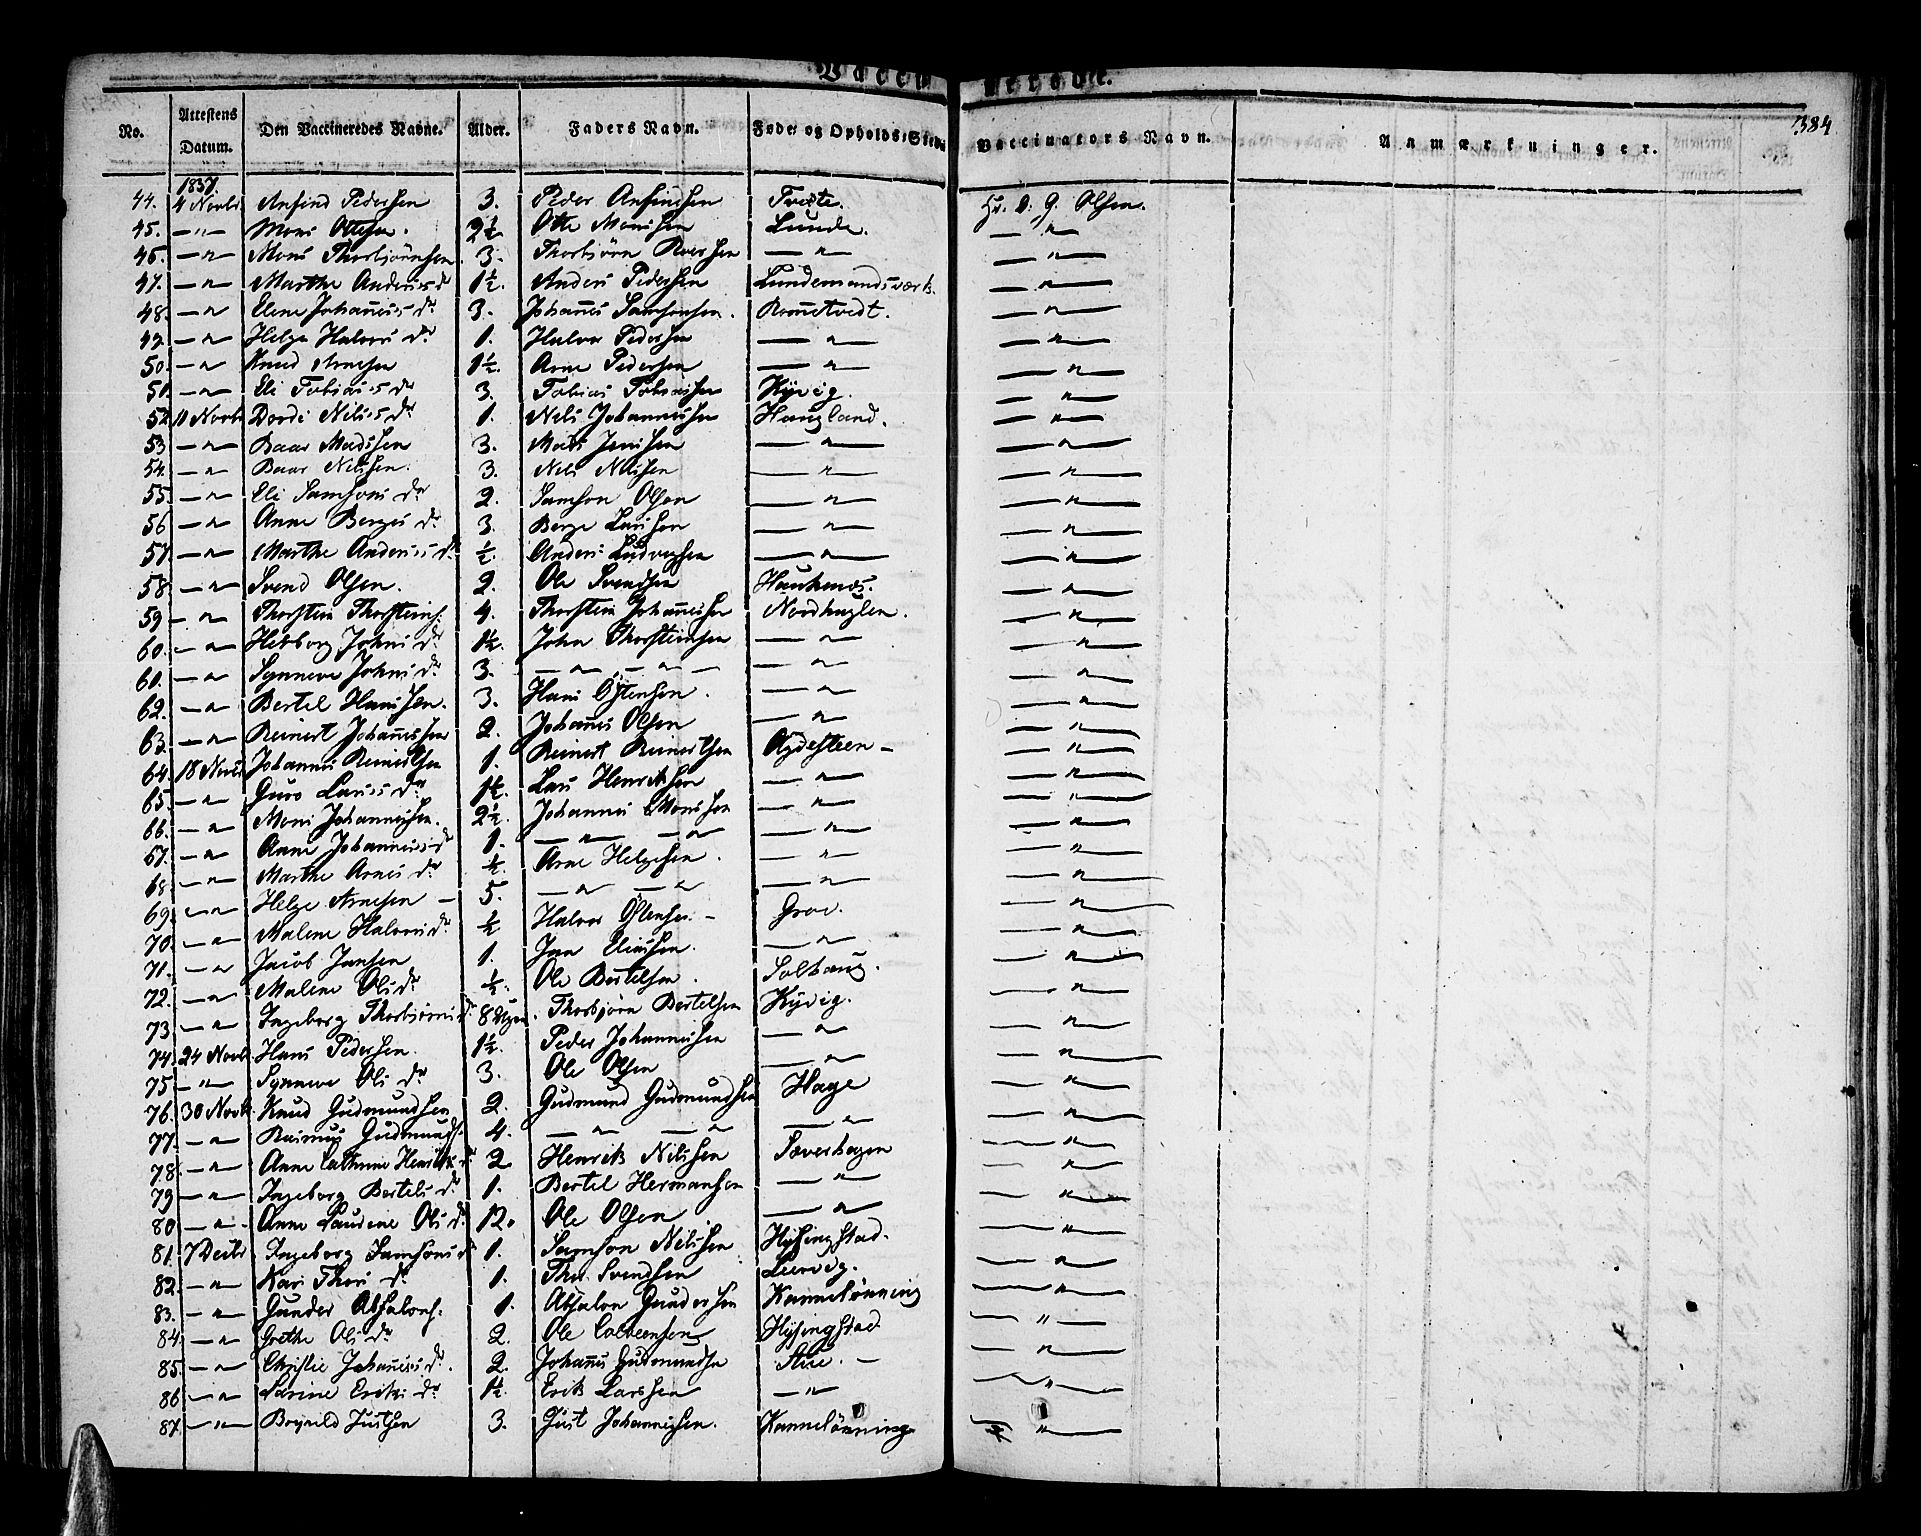 384
No. Attestens Datum. Den Vaccineredes Navne. Alder. Faders Navn. Føde- og Opholds-Sted Vaccinators Navn. Anmærkninger.
1837.
44. 4 Novbr Anfind Pedersen 3. Peder Anfindsen Tveite. Hr. O. G. Olsen.
45. — " — Mons Ottesen. 2½ Otte Monsen Lunde. — " —
46. — " — Mons Thorbjörnsen 3. Thorbjörn — " — — " —
47. — " — Marthe Andersd 1½. Anders Pedersen Lundemandsværk. — " —
48. — " — Elene Johannesd 3. Johannes Samsonsen. Rommetvedt. — " —
49. — " — Helge Halvors dr 1. Halvor Pedersen — " — — " —
50. — " — Knud Arnesen 1½. Arne Pedersen — " — — " —
51. — " — Eli Tobias dr 3. Tobias Tobiassen Kyvig. — " —
52. 11 Novbr Dordi Nils dr 1. Nels Johannessen Haugland. — " —
53 — " — Baar Madsen 3. Mads Jensen — " — — " —
54. — " Baar Nilsen. 3. Nels Nilsen — " — — " —
55. — " — Eli Samsons dr 2. Samson Olsen — " — — " —
56 — " — Anne Berges dr 3. Berge Larssen — " — — " —
57. — " — Marthe Anders dr ½. Anders Ludvigsen — " — — " —
58 — " — Svend Olsen. 2. Ole Svendsen — " —
59 — " — Thorstein Thorsteins. 4. Thorstein Johannessen Nordhuglen. — " —
60. — " — Johns dr 1½. John Thorsteinsen — " — — " —
61. — " — Synneve Johns dr 3. — " — " — — " — — " —
62. — " — Bertel Hanssen. 3. Hans Østensen. — " — — " —
63. — " — Reinert Johannessen 2. Johannes Olsen — " — — " —
64. 18 Novbr Johannes Reinertsen 1. Reinert Reinertsen Aydesteen — — " —
65. — " — Guro Larss dr 1½. Lars Henriksen — " — — " —
66. — " — Mons Johannessen. 2½. Johannes Monsen — " — — " —
67. — " — Anne Johannesd 1. — " — — " — — " — — " —
68. — " — Marthe Arnes dr ½. Arne Helgesen. — " — — " —
69. — " — Helge Arnesen — 5. — " — — " — — " — — " —
70. — " — Malene Halvors dr ½ Halvor Østensen — Grov. — " —
71. — " Jacob Jansen 1. Jan Eliassen. — " — — " —
72. — " — Malene Ols dr ½. Ole Bertelsen. Solhaug. — " —
73 — " — Ingeborg Thorbjörns dr 8 Ugen. Thorbjörn Bertelsen Kyvig. — " —
74. 24 Novbr Hans Pedersen. 1½. Peder Johannessen — " — — " —
75 — " — Synneve Ols dr 3. Ole Olsen — " — — " —
76. 30 Novbr Knud Gudmundsen 2. Gudmund Gudmundsen Hage — " —
77. — " — Rasmus Gudmunds. 4. — " — — " — — " — — " —
78. — " — Anne Cathrine Henriks dr 2 Henrik Nilsen Sæverhagen — " —
79 — " — Ingeborg Bertels dr 1. Bertel Hermansen — " — — " —
80 — " — Anne Ols dr 12. Ole Olsen — " — — " —
81. 7 Decbr Ingeborg Samsons dr 1. Samson Nilsen Hysingstad. — " —
82. — " — Kari Thors dr 1. Thor Svendsen Leervig. — " —
83. — " — Gunder Absalons. 1. Absalon Gundersen Kannelönning — " —
84 — " — Grethe Ols dr 2. Ole Hysingstad — " —
85. — " — Christie Johannes dr. 2. Johannes Gudmundsen — " —
86 — " — Serine Eriks dr 1½. Erik Larssen — " — — " —
87. — " — Justsen 3. Just Johannessen. Kannelönning — " —